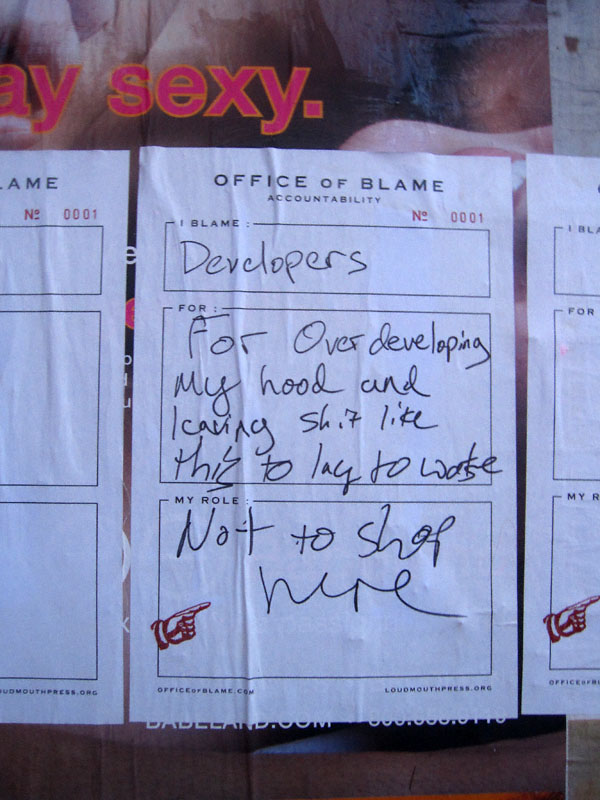 ay sexy.
LAME
Nº 0001
OFFICE OF BLAME
ACCOUNTABILITY
Nº 0001
I BLAME :
Developers
FOR :
For Over developing
my hood and
leaving shit like
this to lay to waste
MY ROLE :
Not to shop
here
OFFICEOFBLAME.COM
LOUDMOUTHPRESS.ORG
LOUDMOUTHPRESS.ORG
I BLA
FOR
MY R
OFFICEOFBL
BABELAND.COM